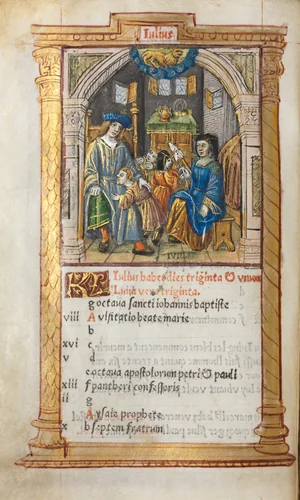 Iulius
IVLII
KL Iulius habet dies triginta &
Luna vero triginta.
g octaua sancti iohannis baptiste
viii A visitatio beate marie
b
xvi c
v d
e octaua apostolorum petri & pauli
xiii f pantheri confessoris
ii g
A ysaie prophete
x b septem fratrum